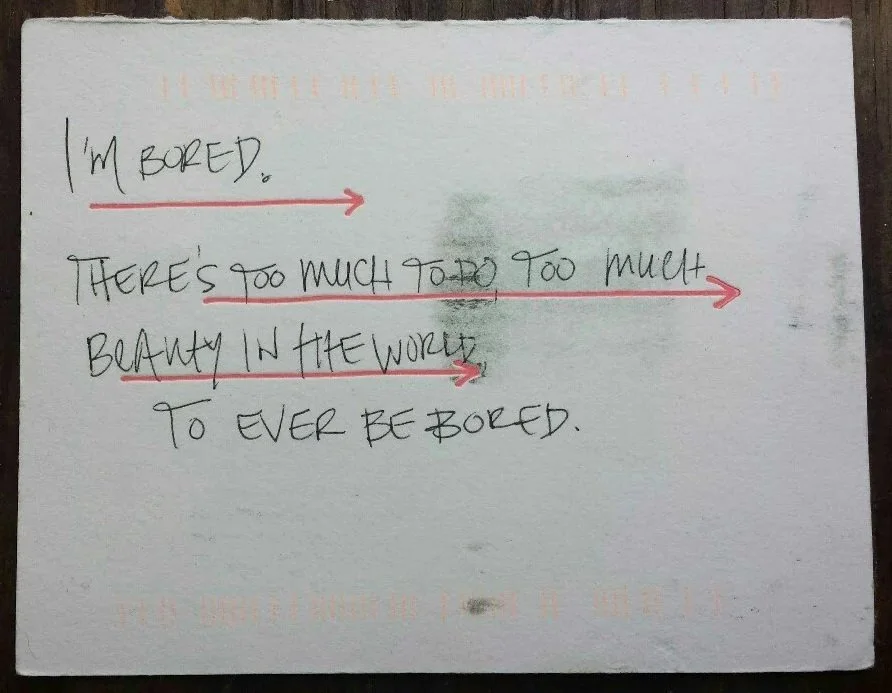 I'M BORED.
THERE'S TOO MUCH TO DO, TOO MUCH
BEAUTY IN THE WORLD
TO EVER BE BORED.